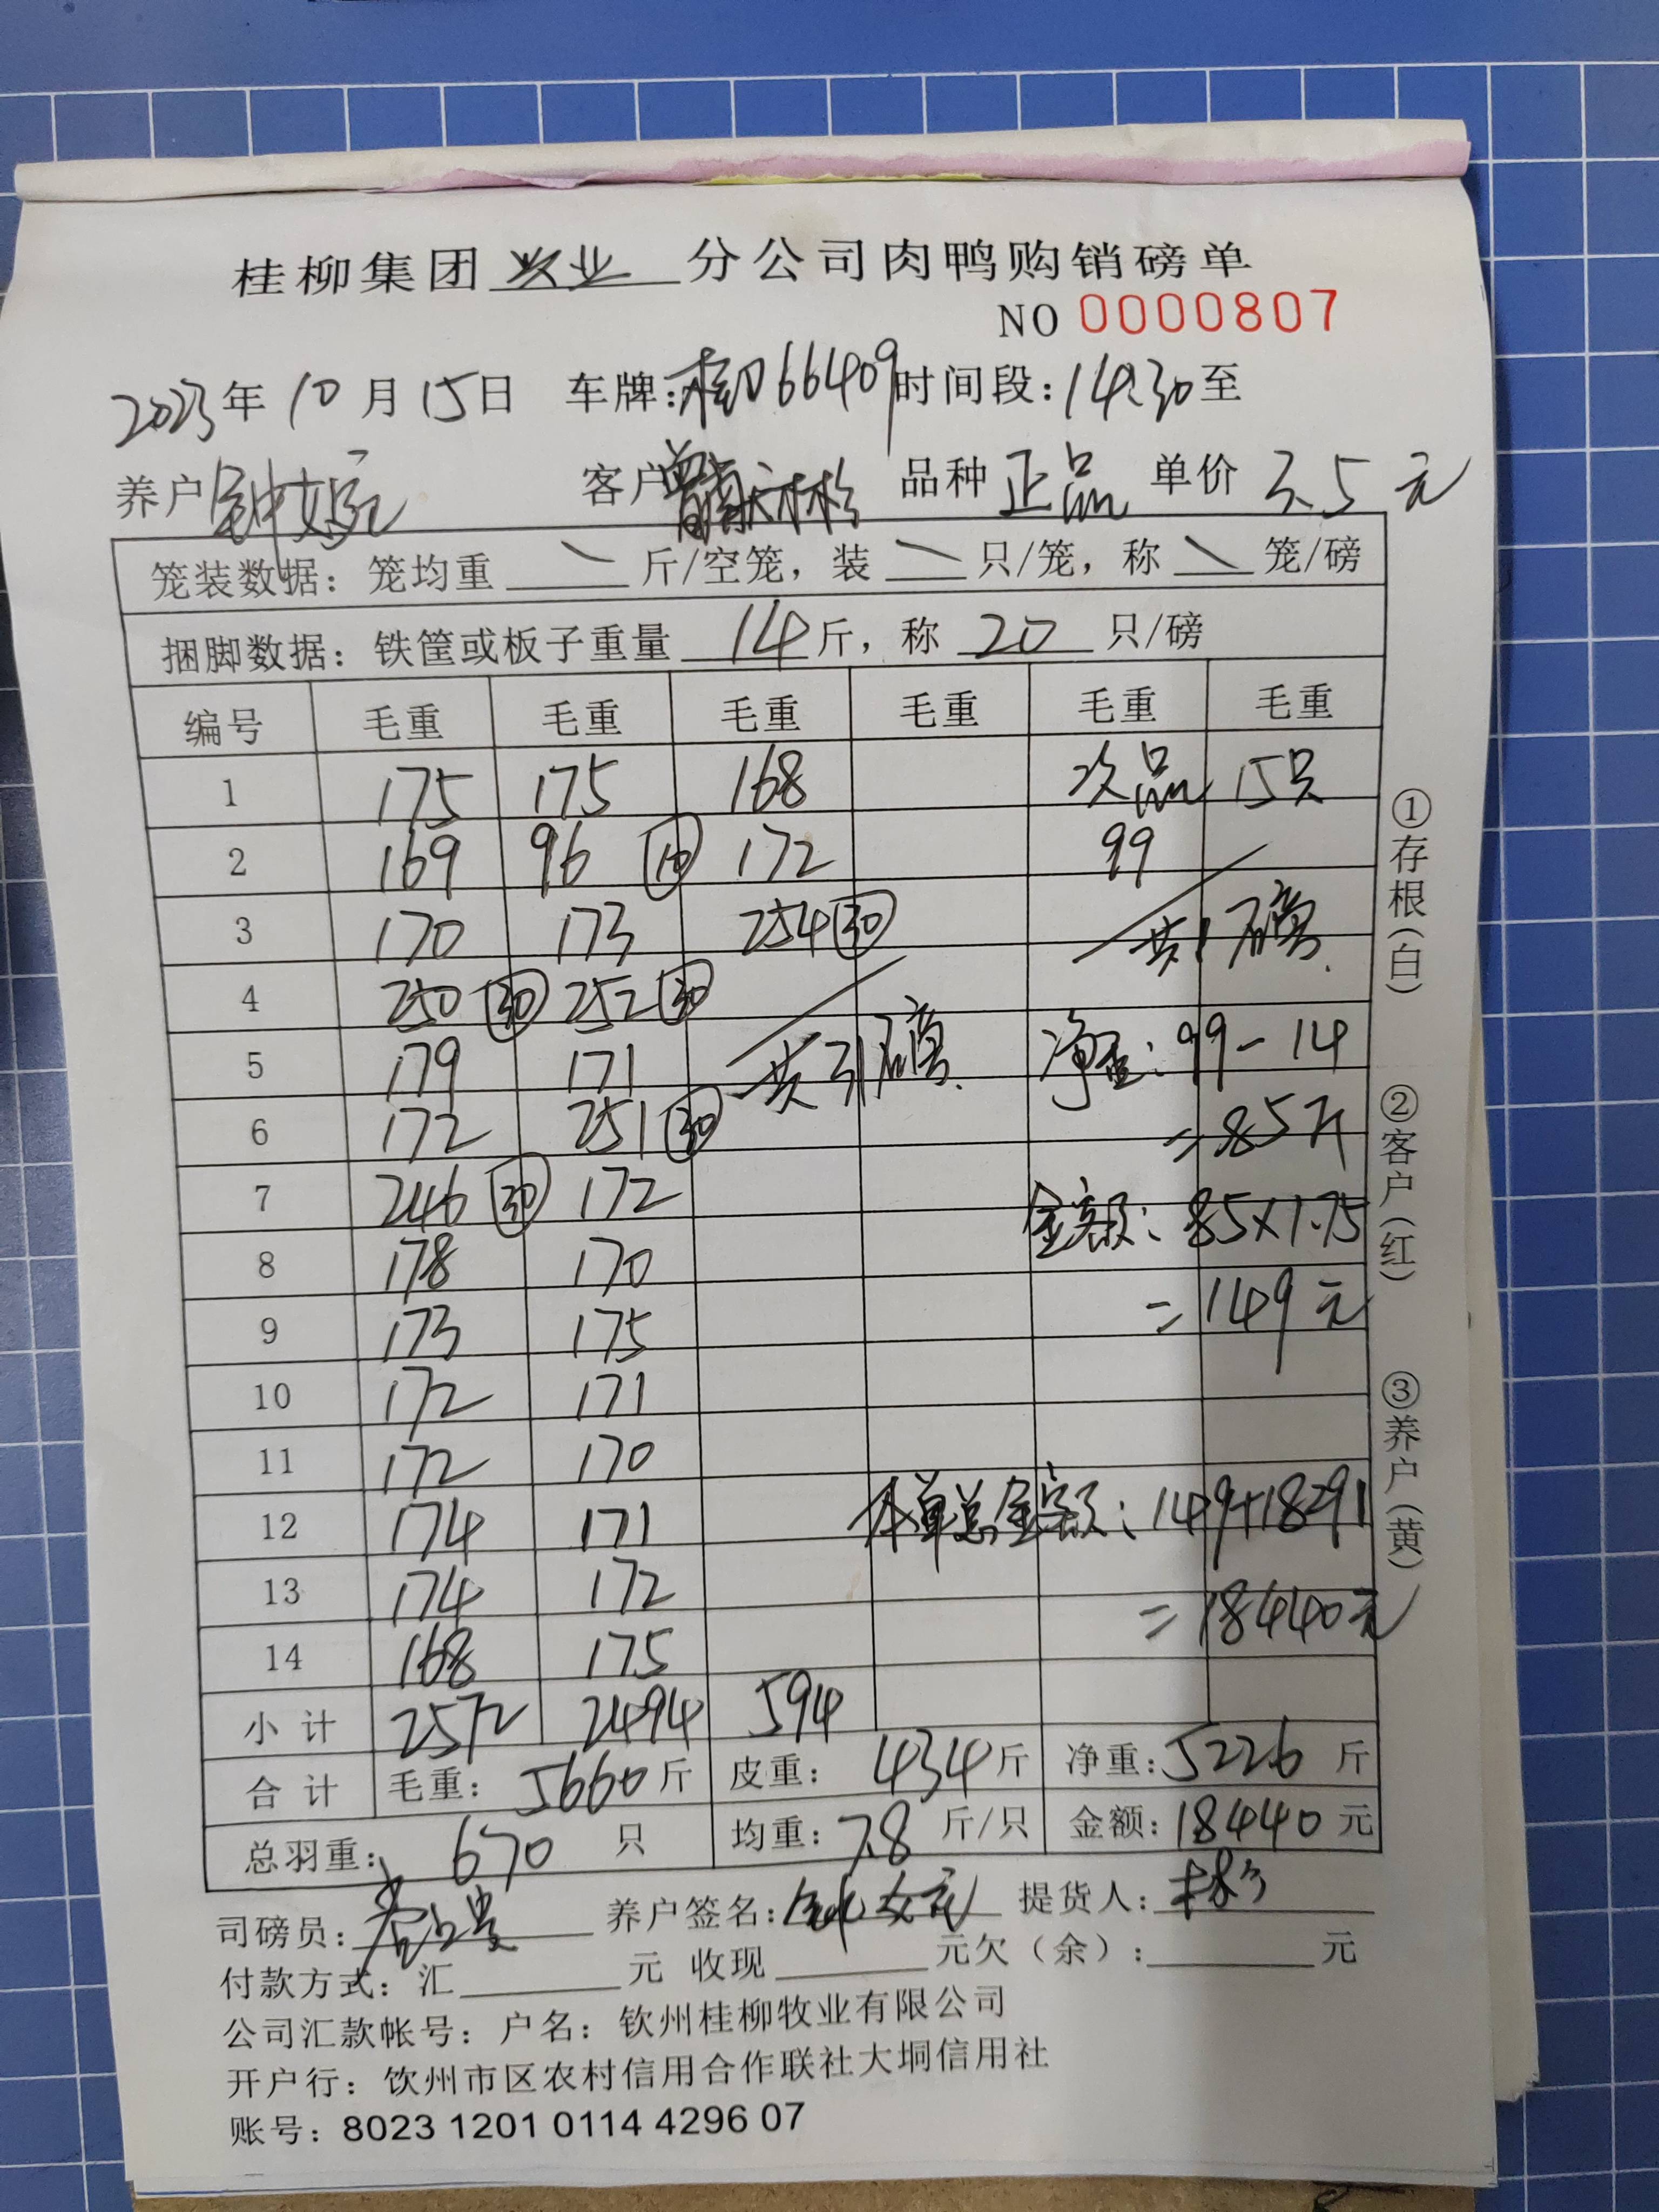 桂柳集团兴业分公司肉鸭购销磅单
NO 0000807
2023年10月15日 车牌:桂D66409 时间段:14:30至
养户 钟婉 客户 品种 正品 单价 3.5元
笼装数据：笼均重 \ 斤/空笼，装 \ 只/笼，称 \ 笼/磅
捆脚数据：铁筐或板子重量 14 斤，称 20 只/磅
编号 毛重 毛重 毛重 毛重 毛重 毛重
1 175 175 168 次品 15只
2 169 96 ⑩ 172 99
3 170 173 254 ㉚ 共1磅
4 250 ㉚ 252 ㉚
5 179 171 共31磅 净重：99-14
6 172 251 ㉚ =85斤
7 246 ㉚ 172 金额：85×1.75
8 178 170
9 173 175 =149元
10 172 171
11 172 170
12 174 171 本单总金额：149+18291
13 174 172
14 168 175 =18440元
小计 2572 2494 594
合计 毛重：5660斤 皮重：434斤 净重：5226斤
总羽重：670 只 均重：7.8 斤/只 金额：18440元
司磅员： 养户签名： 提货人：
付款方式：汇 元 收现 元欠（余）： 元
公司汇款帐号：户名：钦州桂柳牧业有限公司
开户行：饮州市区农村信用合作联社大垌信用社
账号：8023 1201 0114 4296 07
①存根（白）
②客户（红）
③养户（黄）